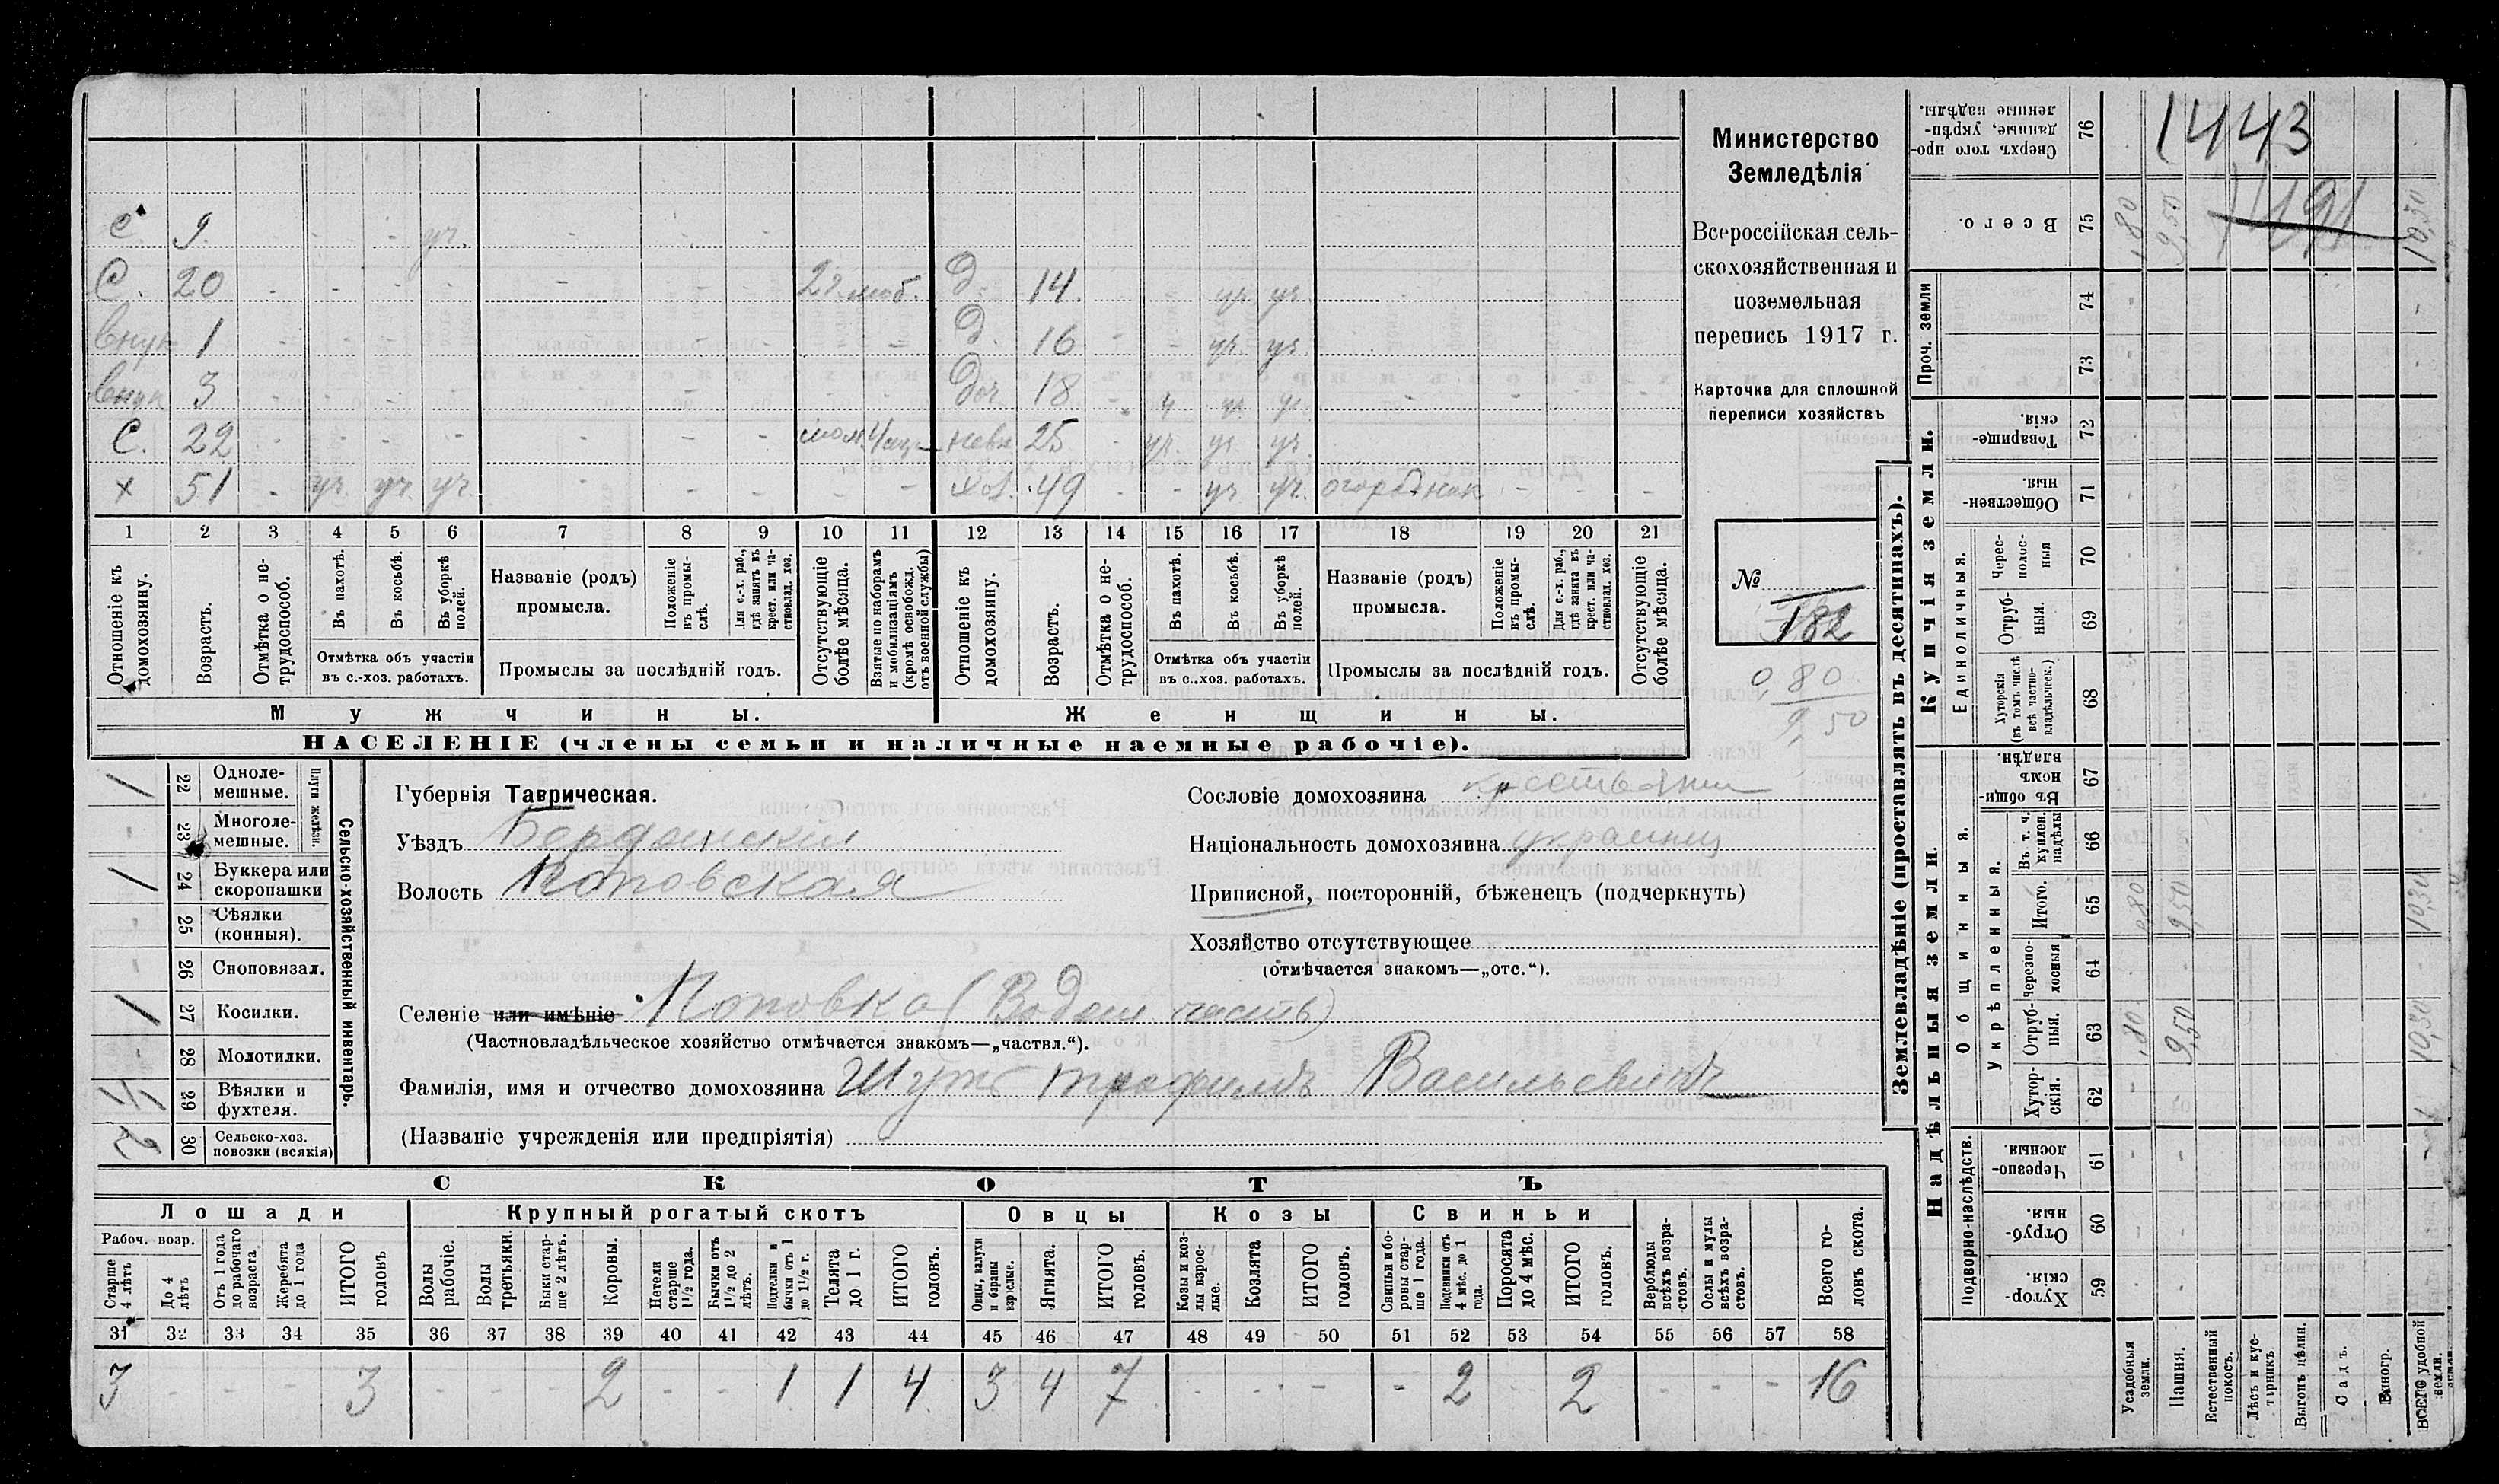 С. 9. - - - - уч. - - -
С. 20 - - - - - - - 2 г. моб. д. 14. - - уч. уч. - - - -
внук 1 - - - - - - - - - д. 16 - - уч. уч. - - - -
внук 3 - - - - - - - - - доч 18 - у уч уч. - - - -
С. 22 - - - - - - - невх. 25 - уч. уч. уч. - - - -
х 51 - уч. уч. уч. - - - - - хоз. 49 - - уч уч. огородник - - -
1 2 3 4 5 6 7 8 9 10 11 12 13 14 15 16 17 18 19 20 21
Отношеніе къ домохозяину.
Возрастъ.
Отмѣтка о не-трудоспособ.
Въ пахотѣ.
Въ косьбѣ.
Въ уборкѣ полей.
Отмѣтка объ участіи въ с.-хоз. работахъ.
Названіе (родъ) промысла.
Положеніе въ промы-слѣ.
Для с.-х. раб., гдѣ занятъ въ крест. или ча-стновлад. хоз.
Промыслы за послѣдній годъ.
Отсутствующіе болѣе мѣсяца.
Взятые по наборамъ и мобилизаціямъ (кромѣ освобожд. отъ военной службы)
Отношеніе къ домохозяину.
Возрастъ.
Отмѣтка о не-трудоспособ.
Въ пахотѣ.
Въ косьбѣ.
Въ уборкѣ полей.
Отмѣтка объ участіи въ с.-хоз. работахъ.
Названіе (родъ) промысла.
Положеніе въ промы-слѣ.
Для с.-х. раб., гдѣ занята въ крест. или ча-стновлад. хоз.
Промыслы за послѣдній годъ.
Отсутствующіе болѣе мѣсяца.
Мужчины.
Женщины.
НАСЕЛЕНІЕ (члены семьи и наличные наемные рабочіе).
Министерство
Земледѣлія
Всероссійская сель-
скохозяйственная и
поземельная
перепись 1917 г.
Карточка для сплошной
переписи хозяйствъ
№
182
0,80
9,50
1 22 Одноле-мешные.
- 23 Многоле-мешные.
Плуги желѣзн.
1 24 Буккера или скоропашки
- 25 Сѣялки (конныя).
- 26 Сноповязал.
1 27 Косилки.
- 28 Молотилки.
29 Вѣялки и фухтеля.
2 30 Сельско-хоз. повозки (всякія)
Сельско-хозяйственный инвентарь.
Губернія Таврическая.
Уѣздъ Бердянскій
Волость Поповская
Сословіе домохозяина крестьянин
Національность домохозяина украинец
Приписной, посторонній, бѣженецъ (подчеркнуть)
Хозяйство отсутствующее
(отмѣчается знакомъ—„отс.“).
Селеніе или имѣніе Поповка (Водян часть)
(Частновладѣльческое хозяйство отмѣчается знакомъ—„частвл.“).
Фамилія, имя и отчество домохозяина Трофимъ Васильевичъ
(Названіе учрежденія или предпріятія)
СКОТЪ
Лошади Крупный рогатый скотъ Овцы Козы Свиньи
Рабоч. возр.
Старше 4 лѣтъ
До 4 лѣтъ
Отъ 1 года до рабочаго возраста
Жеребята до 1 года
ИТОГО головъ
Волы рабочіе.
Волы третьяки.
Быки стар-ше 2 лѣтъ.
Коровы.
Нетели старше 1½ года.
Бычки отъ 1½ до 2 лѣтъ.
Подтелки и бычки отъ 1 до 1½ г.
Телята до 1 г.
ИТОГО головъ.
Овцы, валухи и бараны взрослые.
Ягнята.
ИТОГО головъ.
Козы и коз-лы взрос-лые.
Козлята
ИТОГО головъ.
Свиньи и бо-ровы стар-ше 1 года.
Подсвинки отъ 4 мѣс. до 1 года.
Поросята до 4 мѣс.
ИТОГО головъ.
Верблюды всѣхъ возра-стовъ.
Ослы и мулы всѣхъ возра-стовъ.
Всего го-ловъ скота.
31 32 33 34 35 36 37 38 39 40 41 42 43 44 45 46 47 48 49 50 51 52 53 54 55 56 57 58
3 - - - 3 - - - 2 - - 1 1 4 3 4 7 - - - - 2 - 2 - - - 16
Землевладѣніе (проставлять въ десятинахъ).
Купчія земли.
Надѣльныя земли.
Сверхъ того про-данные, укрѣп-ленные надѣлы. 76
1443
Всего. 75 ,80 9,50 10,30
1191
Проч. земли 74 73
Товарище-скія. 72
Обществен-ныя. 71
Единоличныя.
Черес-полос-ныя 70
Отруб-ныя. 69
Хуторскія (въ томъ числѣ всѣ частно-владѣльческ.) 68
Общинныя.
Въ общи-номъ владѣн. 67
Укрѣпленныя.
Въ т. ч. куплен. надѣлы 66
Итого. 65 ,80 9,50 10,30
Черезпо-лосныя 64
Отруб-ныя. 63 ,80 9,50 10,30
Хутор-скія. 62
Подворно-наслѣдств.
Черезпо-лосныя 61
Отруб-ныя. 60
Хутор-скія. 59
Усадебныя земли.
Пашня.
Естественный покосъ.
Лѣсъ и кус-тарникъ.
Выгонъ цѣлин.
Садъ.
Виногр.
ВСЕГО удобной земли.